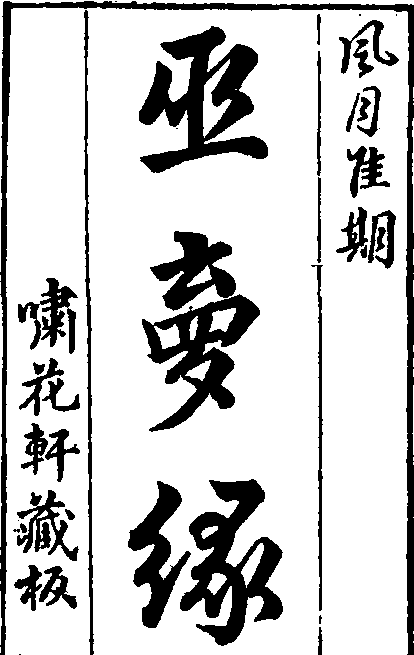 風月佳期
巫夢緣
嘯花軒藏板